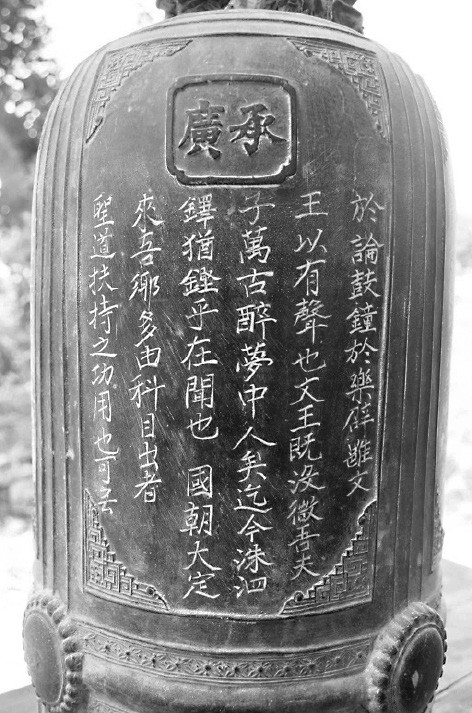 承廣
於論鼓鐘於樂辟雝文
王以有聲也文王既沒微吾夫
子萬古醉夢中人矣迄今洙泗
鐸猶鏗乎在聞也 國朝大定
來吾鄉多由科目出者
聖道扶持之功用也可無